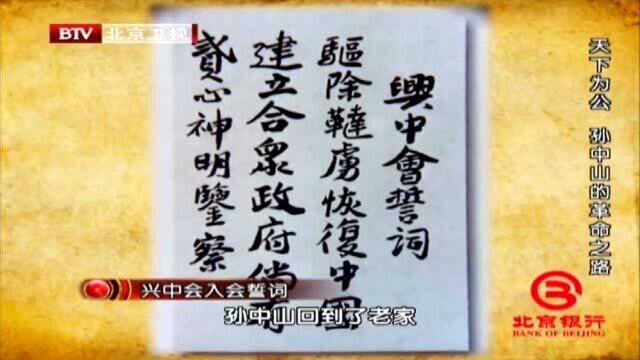 BTV 北京卫视
天下为公 孙中山的革命之路
興中會誓詞
驅除韃虜恢復中國
建立合衆政府倘有
貳心神明鑒察
兴中会入会誓词
孙中山回到了老家
北京银行
BANK OF BEIJING